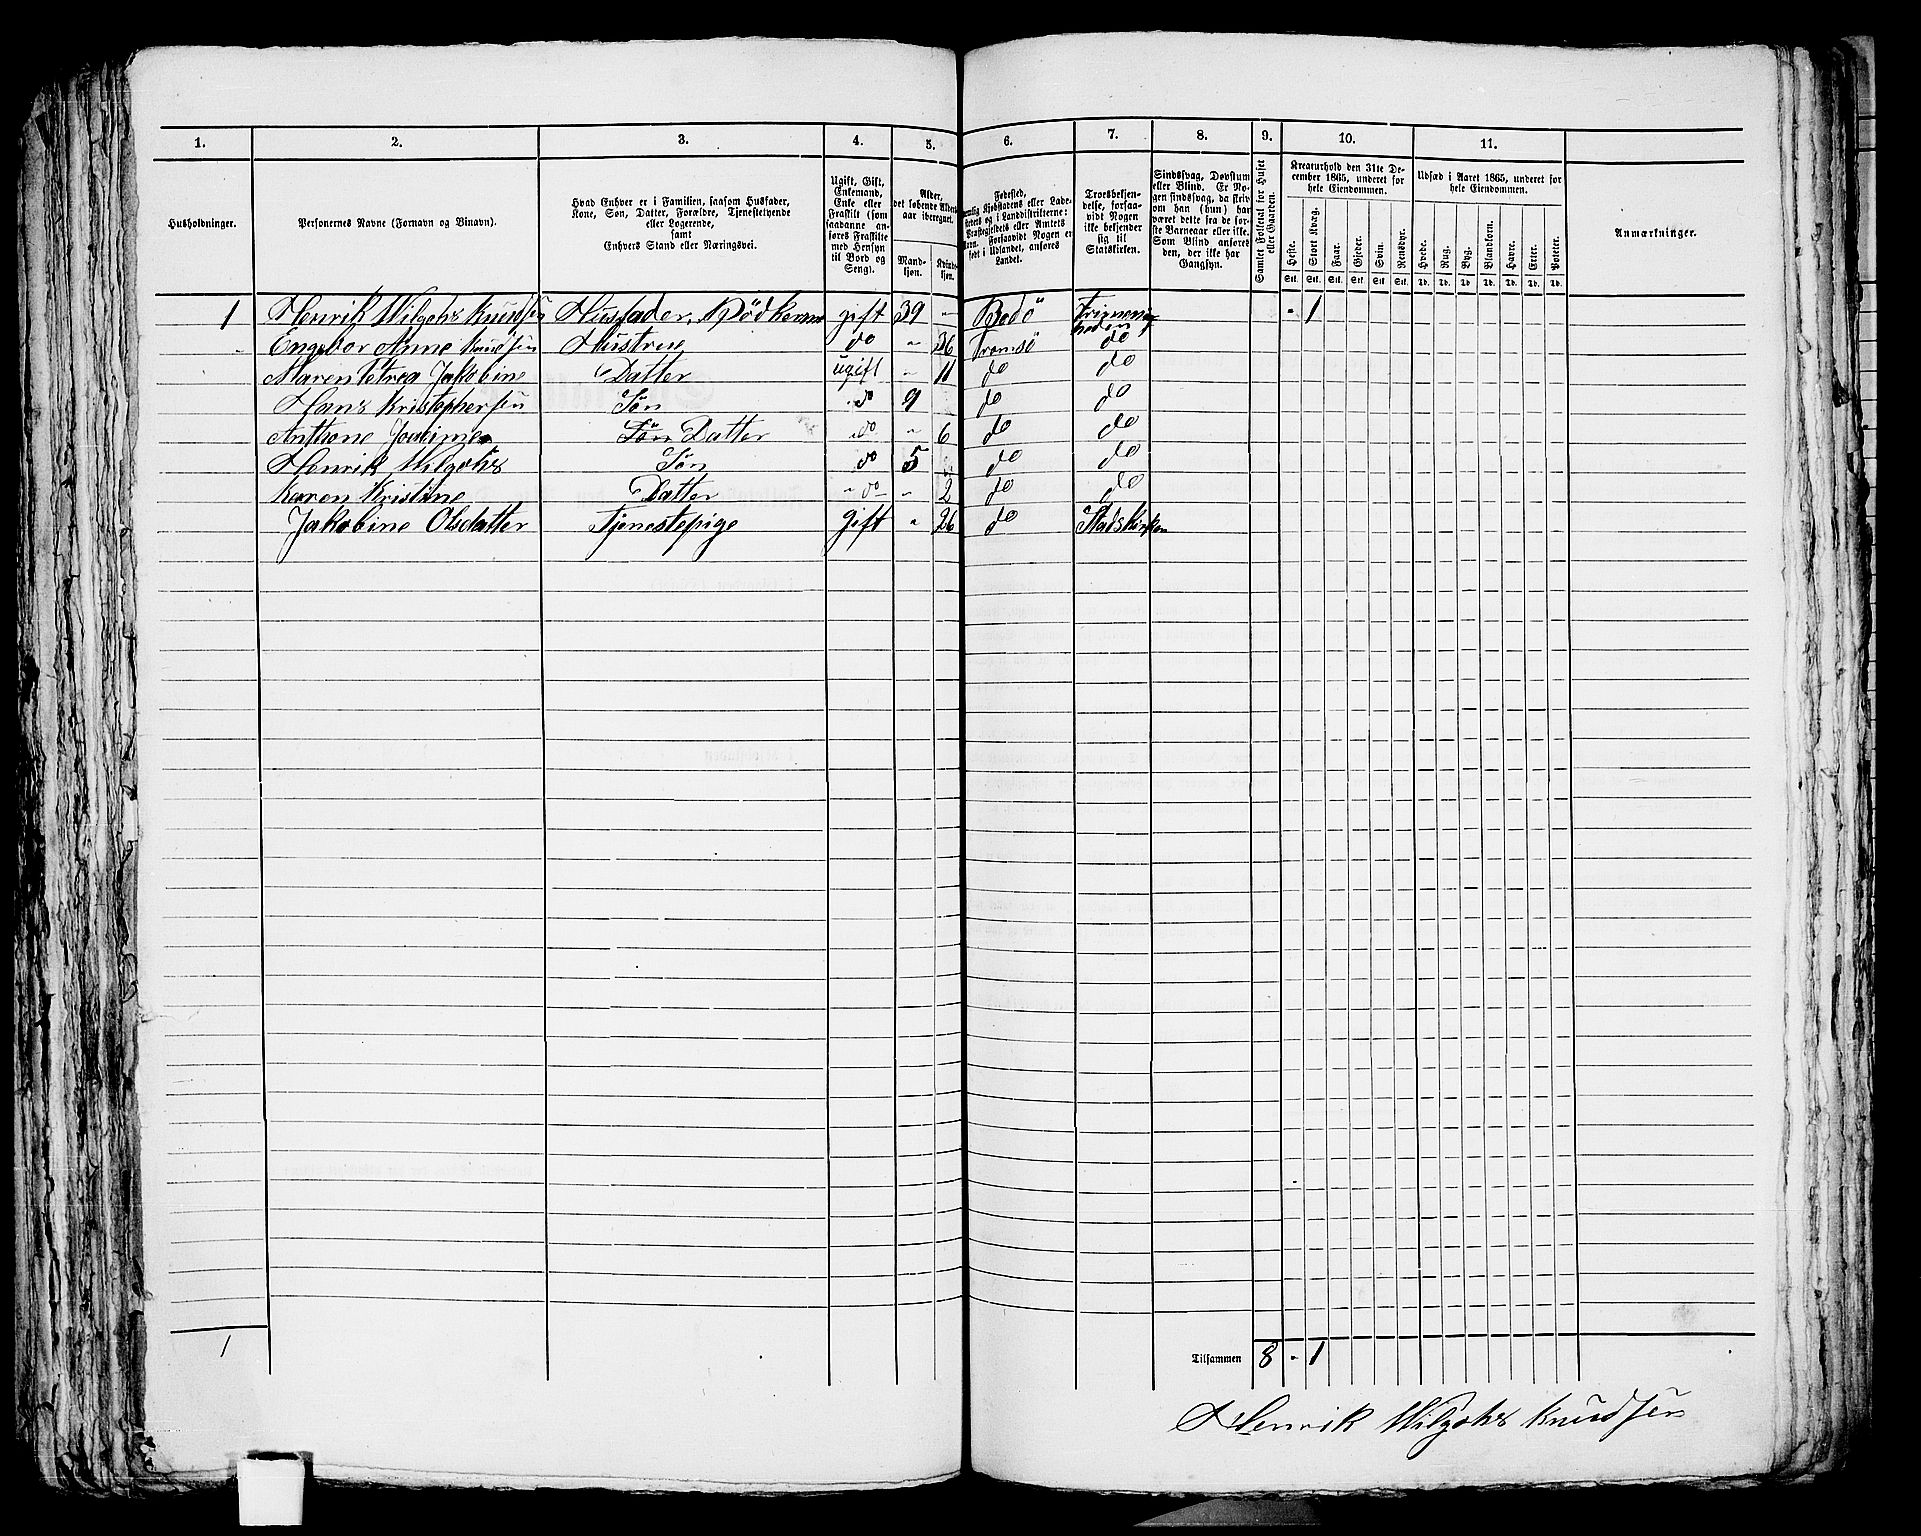 1. 2. 3. 4. 5. 6. 7. 8. 9. 10. 11.
Husholdninger.
Personernes Navne (Fornavn og Binavn).
Hvad Enhver er i Familien, saasom Husfader,
Kone, Søn, Datter, Forældre, Tjenestetyende
eller Logerende,
samt
Enhvers Stand eller Næringsvei.
Ugift, Gift,
Enkemand,
Enke eller
Fraskilt (som
saadanne an-
føres Fraskilte
med Hensyn
til Bord og
Seng).
Alder,
det løbende Alders-
aar iberegnet.
Mand-
kjøn.
Kvind-
kjøn.
Fødested,
nemlig Kjøbstadens eller Lade-
stedets og i Landdistrikterne:
Præstegjeldets eller Amtets
Navn. Forsaavidt Nogen er
født i Udlandet, anføres
Landet.
Troesbekjen-
delse, forsaa-
vidt Nogen
ikke bekjender
sig til
Statskirken.
Sindssvag, Døvstum
eller Blind. Er No-
gen sindssvag, da skriv
om han (hun) har
været dette fra de før-
ste Barneaar eller ikke.
Som Blind anføres
den, der ikke har
Gangsyn.
Samlet Folketal for Huset
eller Gaarden.
Kreaturhold den 31te De-
cember 1865, underet for
hele Eiendommen.
Heste. Stort Kvæg. Faar. Gjeder. Svin. Rensdyr.
Stk. Stk. Stk. Stk. Stk. Stk.
Udsæd i Aaret 1865, underet for
hele Eiendommen.
Hvede. Rug. Byg. Blandkorn. Havre. Erter. Poteter.
Td. Td. Td. Td. Td. Td. Td.
Anmærkninger.
1 Henrik Wilgohs Knudsen Husfader, Bødkersv gift 39 - Bodö Frimenigheden - 1
Engebor Anne Knudsen Hustrue do " 36 Tromsö do
Maren Petrea Jakobine Datter ugift " 11 do do
Hans Kristophersen Søn do 9 do do
Anthone Joakime Søn Datter do " 6 do do
Henrik Wilgohs Søn do 5 do do
Karen Kristine Datter " do " 2 do do
Jakobine Olsdatter Tjenestepige Gift " 26 do Statskirken
1 Tilsammen 8 - 1
Henrik Wilgohs Knudsen